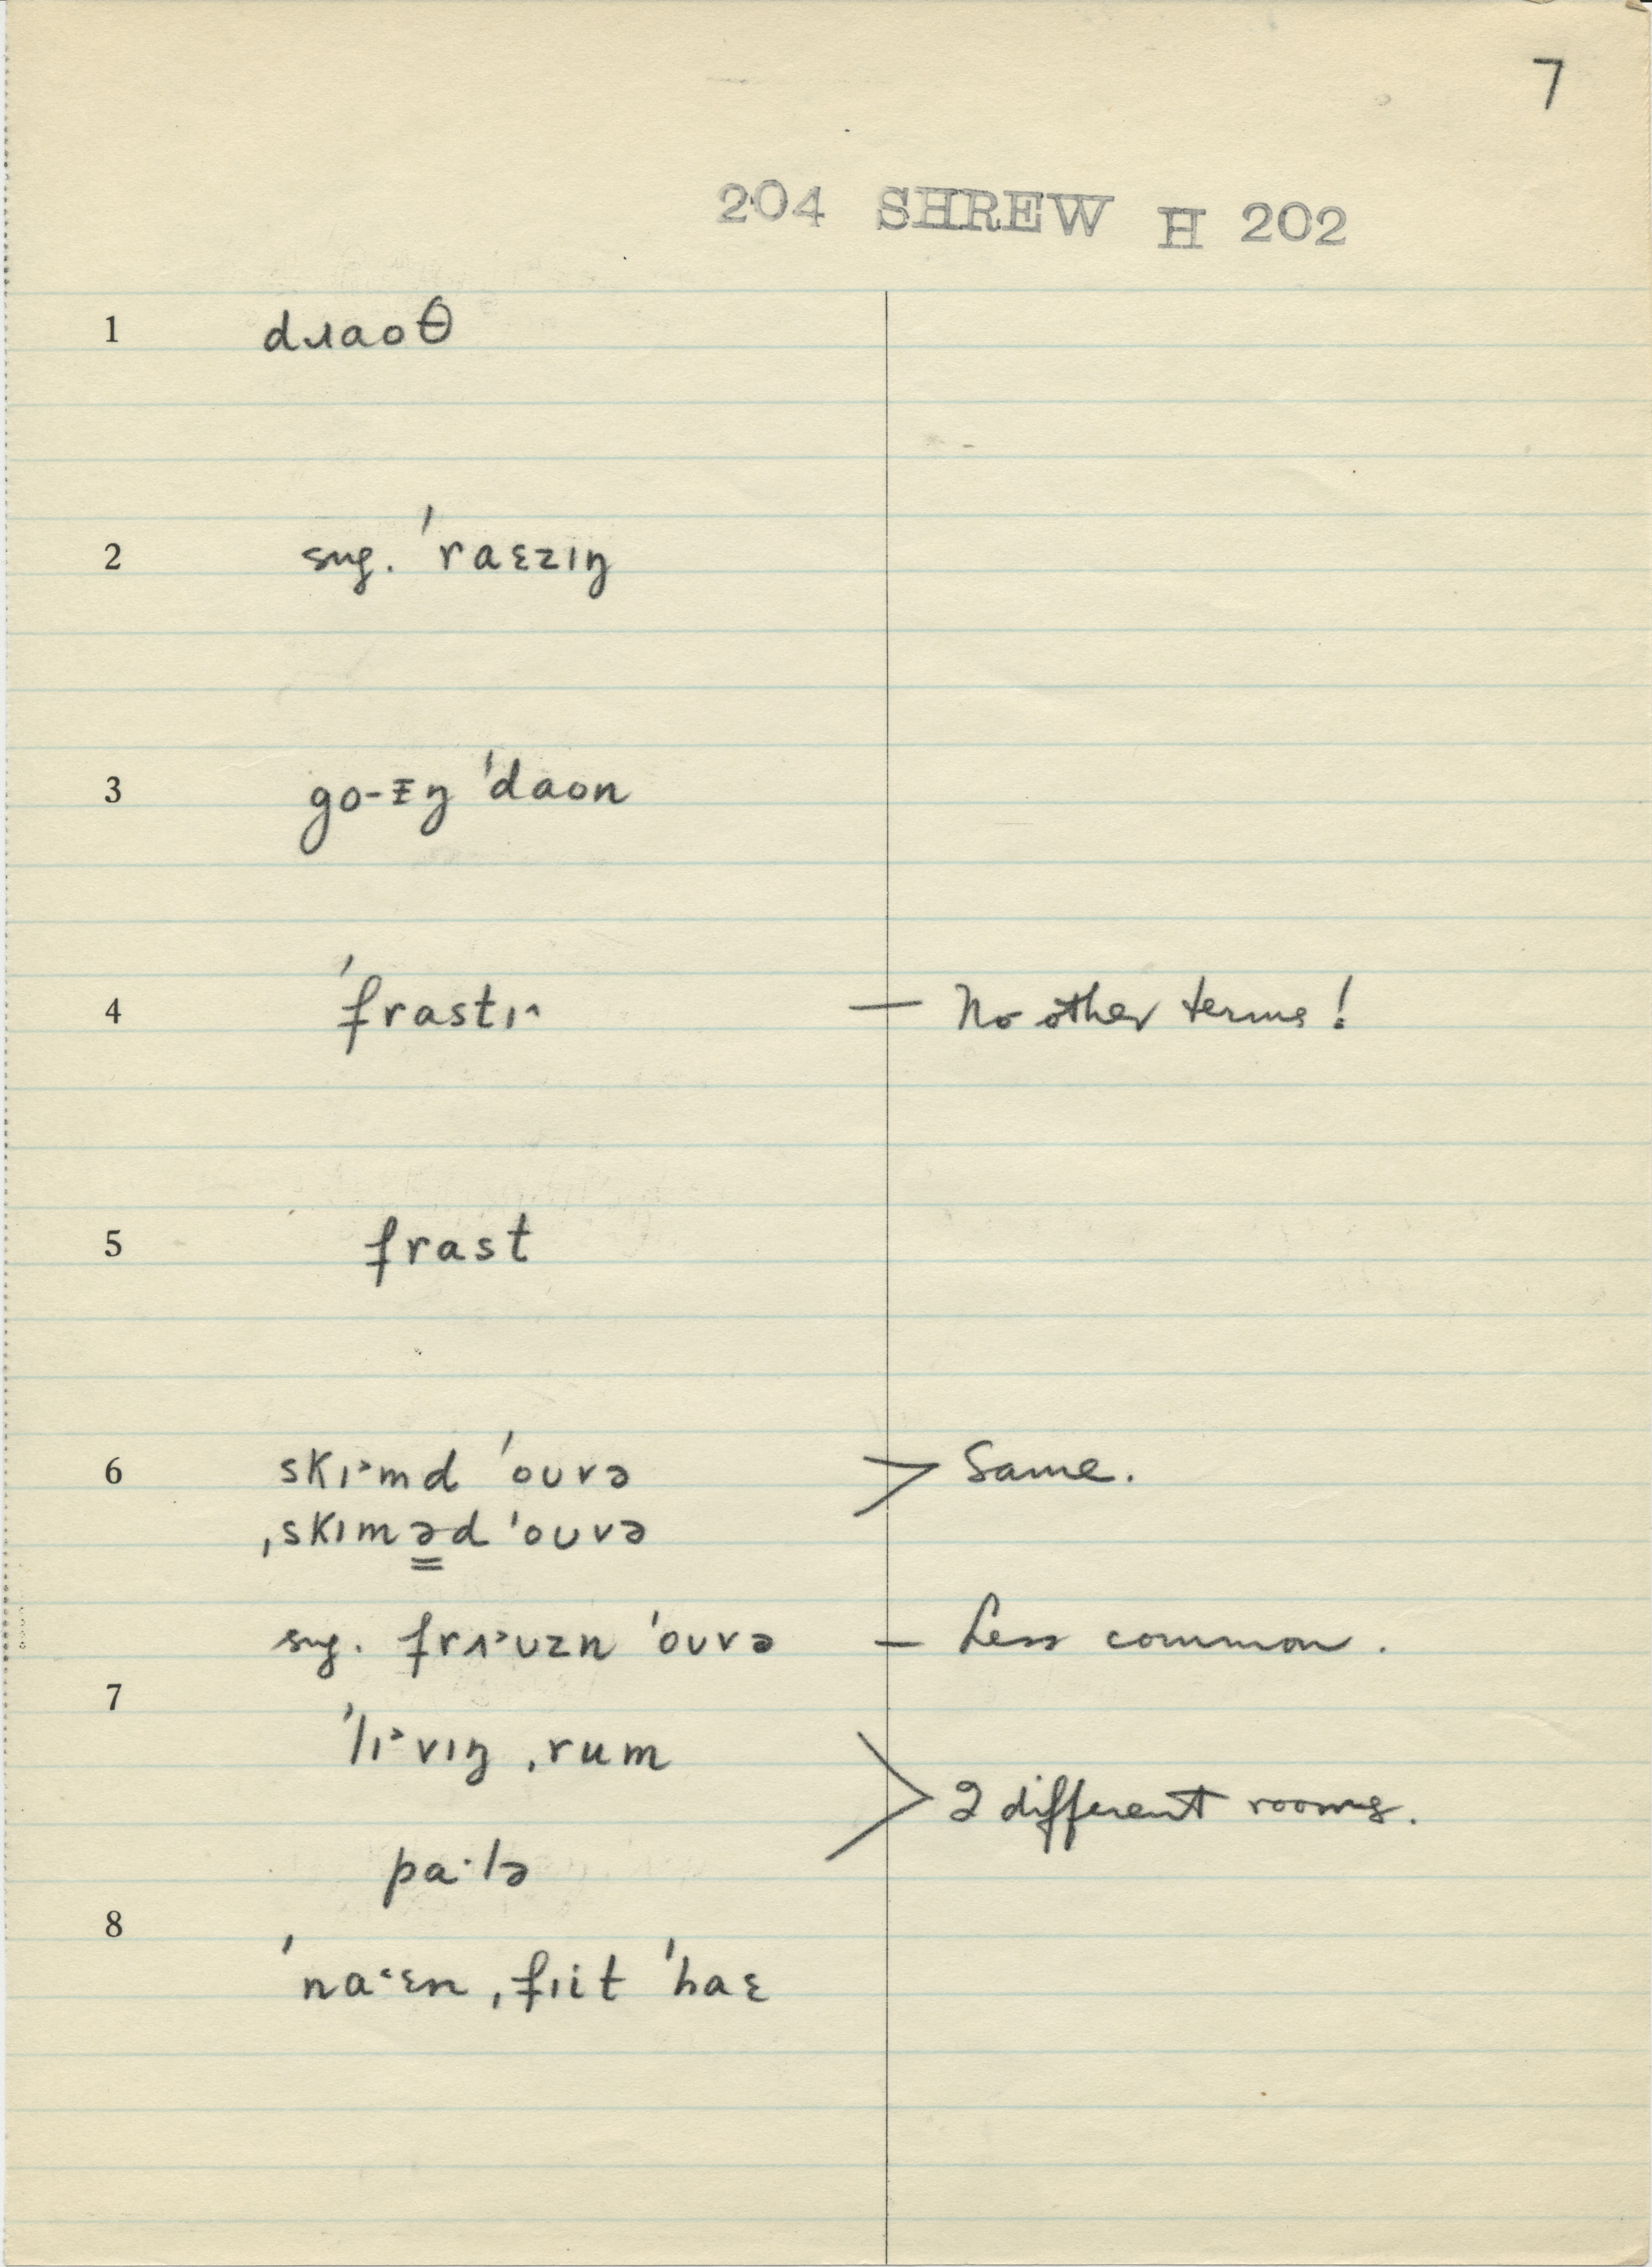 7
204 SHREW H 202
1 dɹaoθ
2 sug. ˈraɛzɪŋ
3 go-ɪ̵ŋ ˈdaon
4 ˈfrastɪ˄ — No other terms!
5 frast
6 skɪ˃md ˈoʊvə > Same.
ˌskɪməd ˈoʊvə
sug. frɪ˃ʊzn ˈoʊvə — Less common.
7
ˈlɪ˃vɪŋ ˌrum > 2 different rooms.
pa·lə
8
ˈna˂ɛn ˌfɪit ˈhaɛ